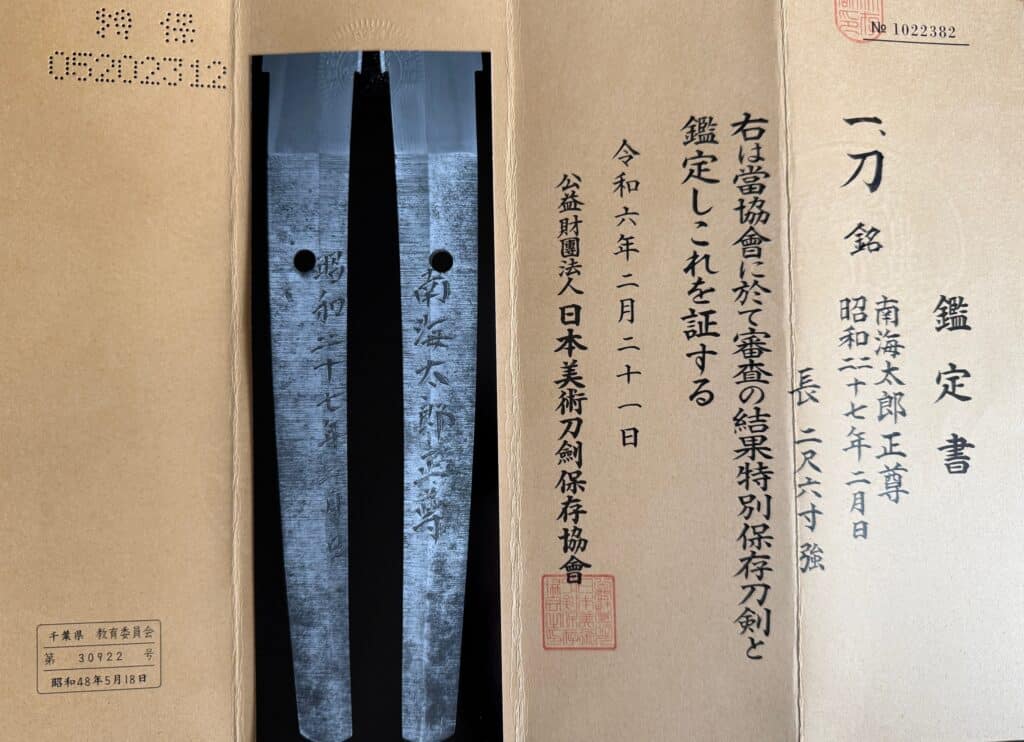 № 1022382
鑑定書
一、刀 銘
南海太郎正尊
昭和二十七年二月日
長 二尺六寸強
右は當協會に於て審査の結果特別保存刀剣と
鑑定しこれを証する
令和六年二月二十一日
公益財團法人 日本美術刀劍保存協會
南海太郎正尊
昭和二十七年二月日
特保
05202312
千葉県 教育委員会
第 30922 号
昭和48年5月18日